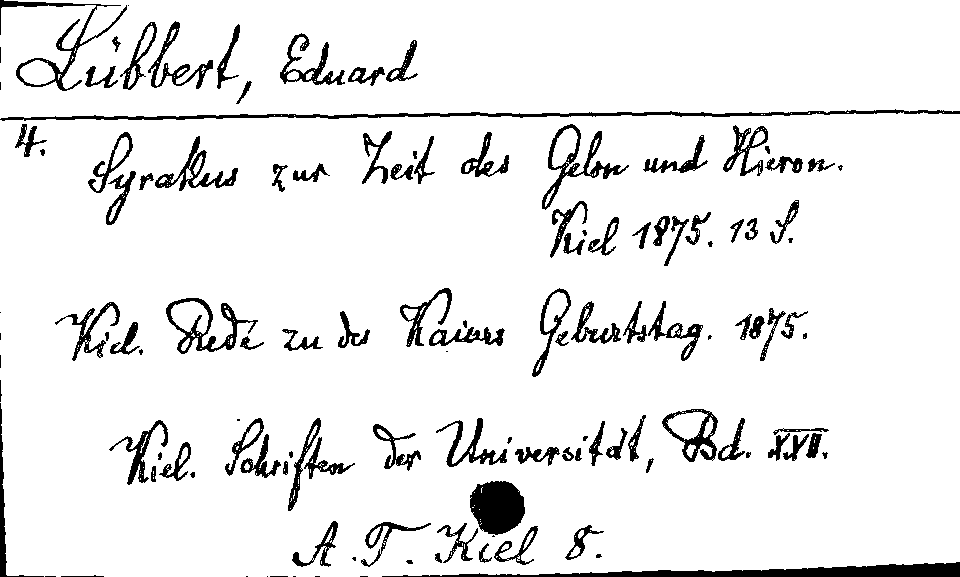 Lübbert, Eduard
4.
Syrakus zur Zeit des Gelon und Hieron.
Kiel 1875. 13 S.
Kiel. Rede zu des Kaisers Geburtstag. 1875.
Kiel. Schriften der Universität, Bd. XXII.
A.T. Kiel 8.